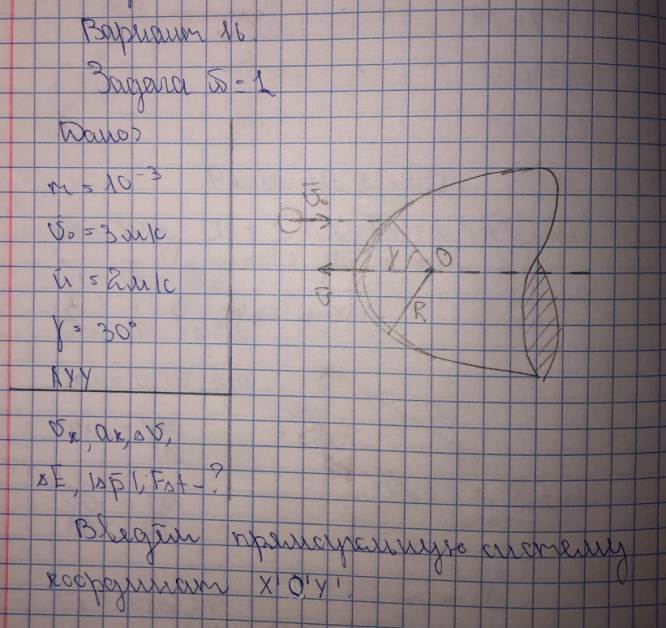 Вариант 16.
Задача №1
Дано:
m = 10⁻³
v₀ = 3 м/с
u = 2 м/с
γ = 30°
АУУ
ΔE, |Δp̄|, FΔt - ?
v̄₀
γ
O
v̄
R
Введём прямоугольную систему
координат X'O'Y'.